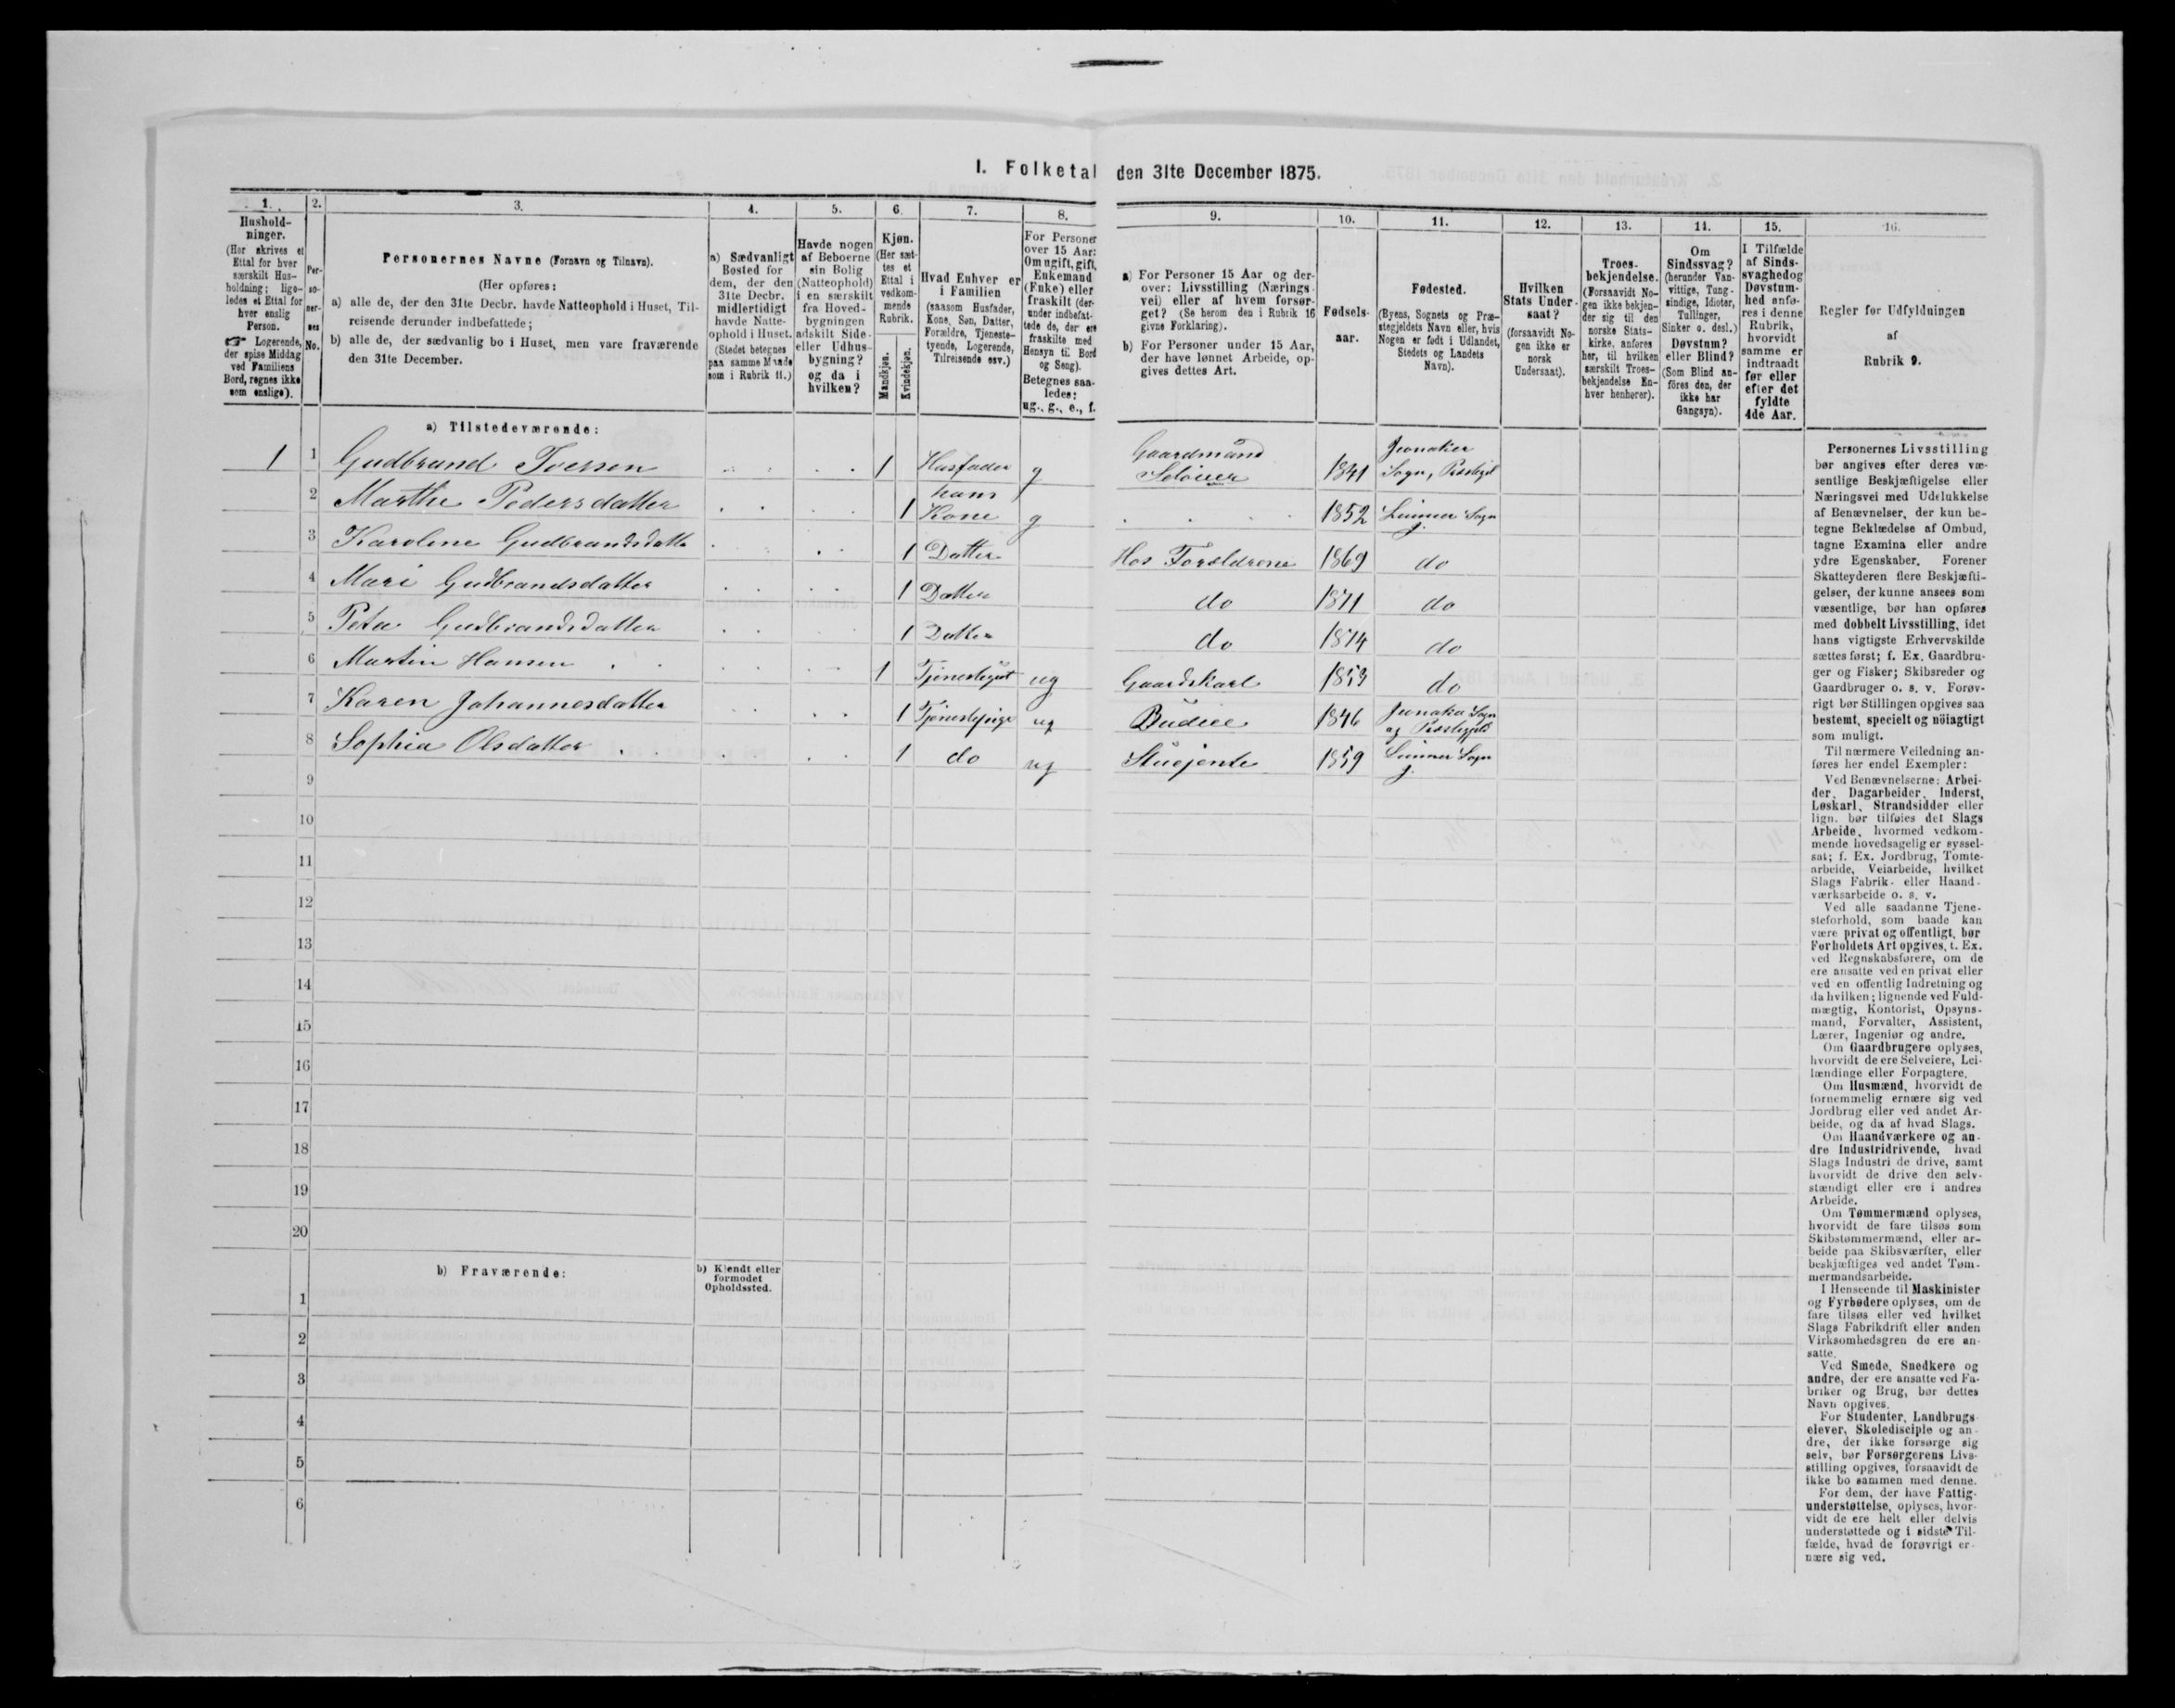 I. Folketal den 31te December 1875.
1. 2. 3. 4. 5. 6. 7. 8. 9. 10. 11. 12. 13. 14. 15. 16.
Hushold-
ninger.
(Her skrives et
Ettal for hver
særskilt Hus-
holdning; lige-
ledes et Ettal for
hver enslig
Person.
☞ Logerende,
der spise Middag
ved Familiens
Bord, regnes ikke
som enslige).
Per-
so-
ner-
nes
No.
Personernes Navne (Fornavn og Tilnavn).
(Her opføres:
a) alle de, der den 31te Decbr. havde Natteophold i Huset, Til-
reisende derunder indbefattede;
b) alle de, der sædvanlig bo i Huset, men vare fraværende
den 31te December.
a) Sædvanligt
Bosted for
dem, der den
31te Decbr.
midlertidigt
havde Natte-
ophold i Huset.
(Stedet betegnes
paa samme Maade
som i Rubrik 11.)
Havde nogen
af Beboerne
sin Bolig
(Natteophold)
i en særskilt
fra Hoved-
bygningen
adskilt Side-
eller Udhus-
bygning?
og da i
hvilken?
Kjøn.
(Her sæt-
tes et
Ettal i
vedkom-
mende
Rubrik.
Mandkjøn.
Kvindekjøn.
Hvad Enhver er
i Familien
(saasom Husfader,
Kone, Søn, Datter,
Forældre, Tjeneste-
tyende, Logerende,
Tilreisende osv.)
For Personer
over 15 Aar:
Om ugift, gift,
Enkemand
(Enke) eller
fraskilt (der-
under indbefat-
tede de, der ere
fraskilte med
Hensyn til Bord
og Seng).
Betegnes saa-
ledes:
ug., g., e., f.
a) For Personer 15 Aar og der-
over: Livsstilling (Nærings-
vei) eller af hvem forsør-
get? (Se herom den i Rubrik 16
givne Forklaring).
b) For Personer under 15 Aar,
der have lønnet Arbeide, op-
gives dettes Art.
Fødsels-
aar.
Fødested.
(Byens, Sognets og Præ-
stegjeldets Navn eller, hvis
Nogen er født i Udlandet,
Stedets og Landets
Navn).
Hvilken
Stats Under-
saat?
(forsaavidt No-
gen ikke er
norsk
Undersaat).
Troes-
bekjendelse.
(Forsaavidt No-
gen ikke bekjen-
der sig til den
norske Stats-
kirke, anføres
her, til hvilken
særskilt Troes-
bekjendelse En-
hver henhører).
Om
Sindssvag?
(herunder Van-
vittige, Tung-
sindige, Idioter,
Tullinger,
Sinker o. desl.)
Døvstum?
eller Blind?
(Som Blind an-
føres den, der
ikke har
Gangsyn).
I Tilfælde
af Sinds-
svaghed og
Døvstum-
hed anfø-
res i denne
Rubrik,
hvorvidt
samme er
indtraadt
før eller
efter det
fyldte
4de Aar.
Regler for Udfyldningen
af
Rubrik 9.
a) Tilstedeværende:
1 1 Gudbrand Iversen 1 Husfader g Gaardmand Seloiier 1841 Jevnaker Sogn, Præstegjd
2 Marthe Pedersdatter 1 hans Kone g 1852 Lunner Sogn J.
3 Karoline Gudbrandsdatte 1 Datter Hos Forældrene 1869 do
4 Mari Gudbrandsdatter 1 Datter do 1871 do
5 Petra Gudbrandsdatter 1 Datter do 1874 do
6 Martin Hansen 1 Tjenestegut ug Gaardskarl 1853 do
7 Karen Johannesdatter 1 Tjenestepige ug Budeie 1846 Jevnaker Sogn og Præstegjeld
8 Sophia Olsdatter 1 do ug Stuejente 1859 Lunner Sogn J.
9
10
11
12
13
14
15
16
17
18
19
20
b) Fraværende:
b) Kjendt eller
formodet
Opholdssted.
1
2
3
4
5
6
Personernes Livsstilling
bør angives efter deres væ-
sentlige Beskjæftigelse eller
Næringsvei med Udelukkelse
af Benævnelser, der kun be-
tegne Beklædelse af Ombud,
tagne Examina eller andre
ydre Egenskaber. Forener
Skatteyderen flere Beskjæfti-
gelser, der kunne ansees som
væsentlige, bør han opføres
med dobbelt Livsstilling, idet
hans vigtigste Erhvervskilde
sættes først; f. Ex. Gaardbru-
ger og Fisker; Skibsreder og
Gaardbruger o. s. v. Forøv-
rigt bør Stillingen opgives saa
bestemt, specielt og nöiagtigt
som muligt.
Til nærmere Veiledning an-
føres her endel Exempler:
Ved Benævnelserne: Arbei-
der, Dagarbeider, Inderst,
Løskarl, Strandsidder eller
lign. bør tilføies det Slags
Arbeide, hvormed vedkom-
mende hovedsagelig er syssel-
sat; f. Ex. Jordbrug, Tomte-
arbeide, Veiarbeide, hvilket
Slags Fabrik- eller Haand-
værksarbeide o. s. v.
Ved alle saadanne Tjene-
steforhold, som baade kan
være privat og offentligt, bør
Forholdets Art opgives, t. Ex.
ved Regnskabsførere, om de
ere ansatte ved en privat eller
ved en offentlig Indretning og
da hvilken; lignende ved Fuld-
mægtig, Kontorist, Opsyns-
mand, Forvalter, Assistent,
Lærer, Ingeniør og andre.
Om Gaardbrugere oplyses,
hvorvidt de ere Selveiere, Lei-
lændinge eller Forpagtere.
Om Husmænd, hvorvidt de
fornemmelig ernære sig ved
Jordbrug eller ved andet Ar-
beide, og da af hvad Slags.
Om Haandværkere og an-
dre Industridrivende, hvad
Slags Industri de drive, samt
hvorvidt de drive den selv-
stændigt eller ere i andres
Arbeide.
Om Tømmermænd oplyses,
hvorvidt de fare tilsøs som
Skibstømmermænd, eller ar-
beide paa Skibsværfter, eller
beskjæftiges ved andet Tøm-
mermandsarbeide.
I Henseende til Maskinister
og Fyrbødere oplyses, om de
fare tilsøs eller ved hvilket
Slags Fabrikdrift eller anden
Virksomhedsgren de ere an-
satte.
Ved Smede, Snedkere og
andre, der ere ansatte ved Fa-
briker og Brug, bør dettes
Navn opgives.
For Studenter, Landbrugs-
elever, Skoledisciple og an-
dre, der ikke forsørge sig
selv, bør Forsørgerens Livs-
stilling opgives, forsaavidt de
ikke bo sammen med denne.
For dem, der have Fattig-
understøttelse, oplyses, hvor-
vidt de ere helt eller delvis
understøttede og i sidste Til-
fælde, hvad de forøvrigt er-
nære sig ved.